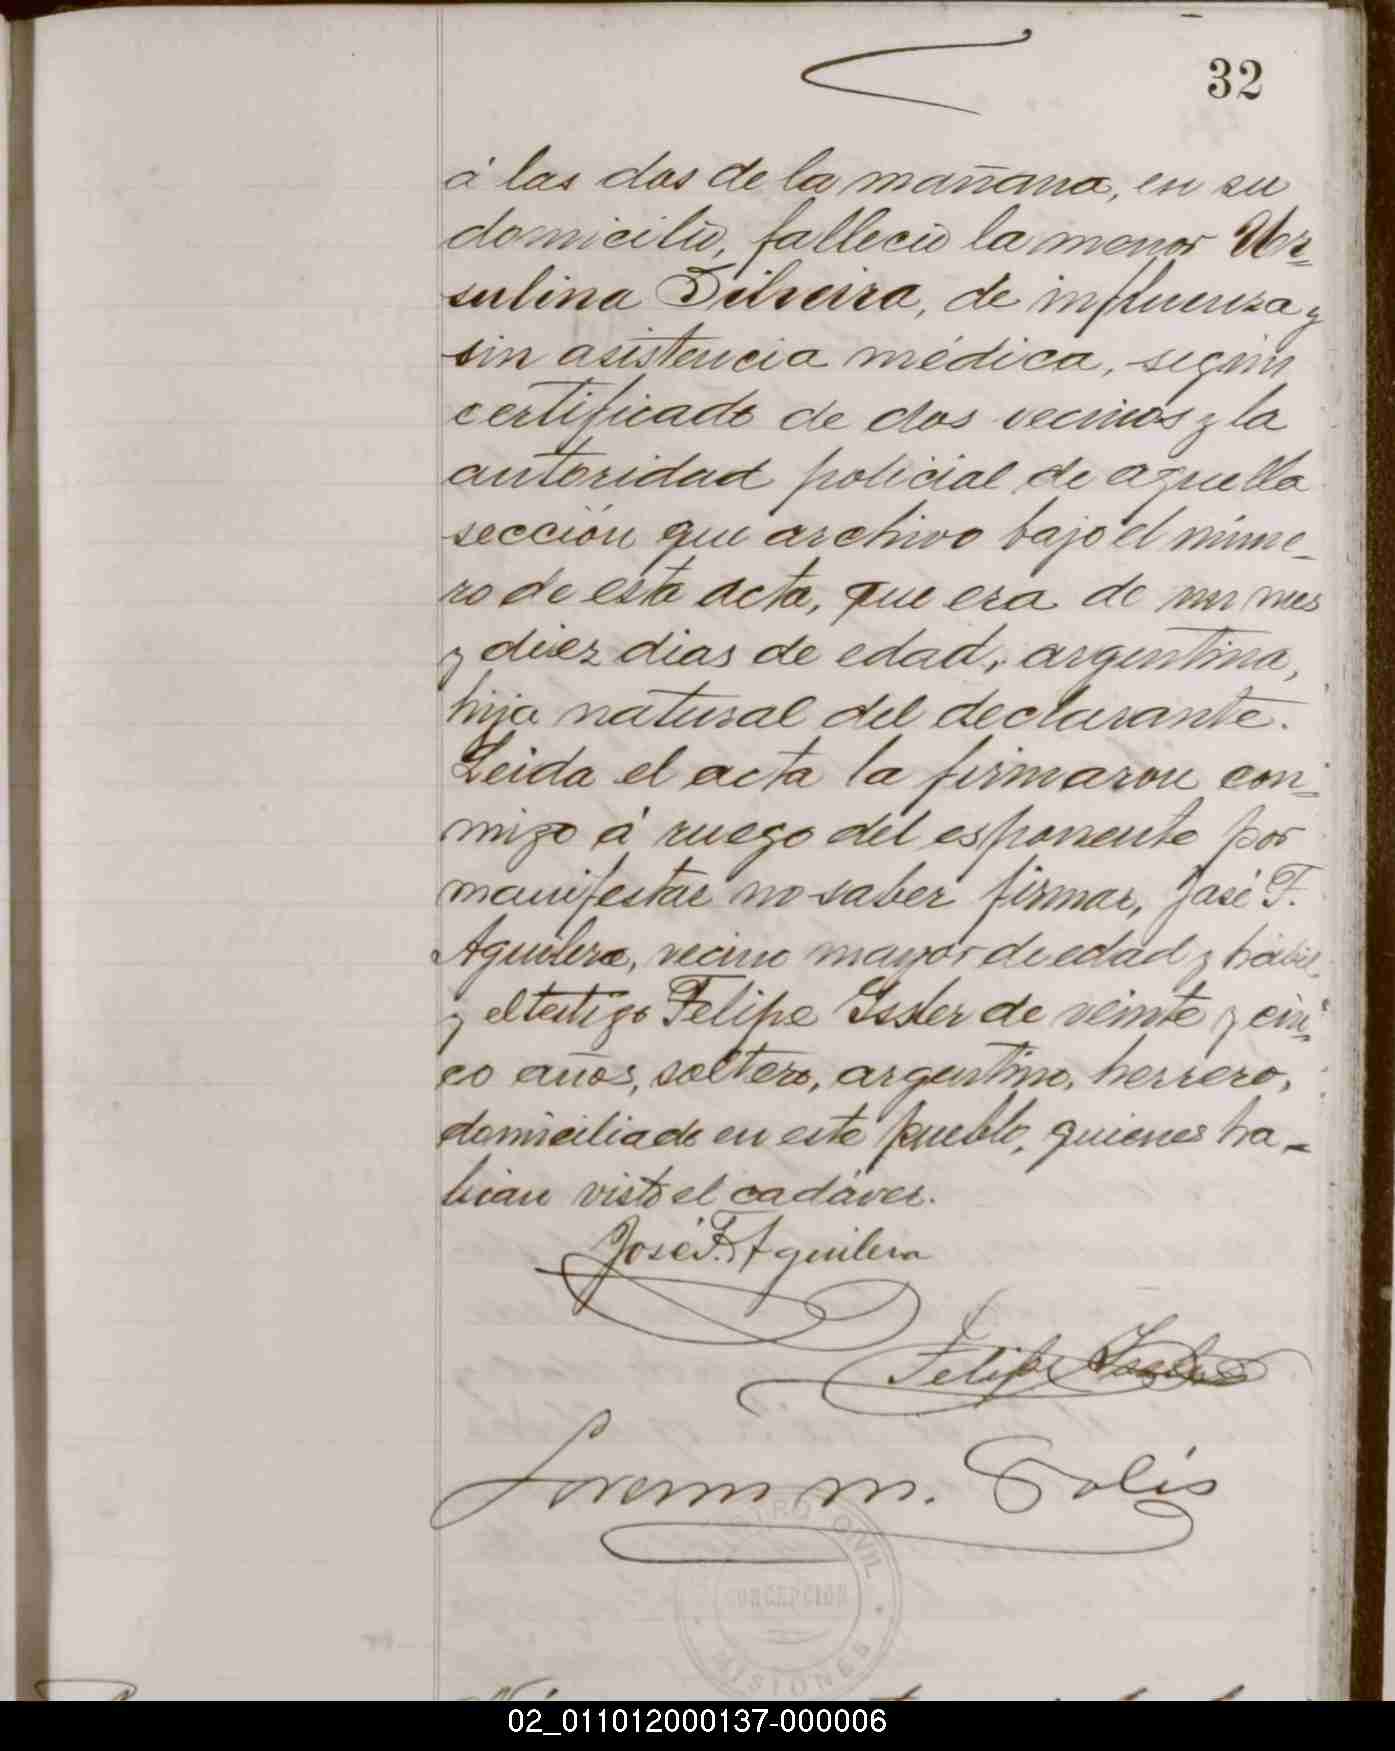 32
á las dos de la mañana, en su
domicilio, falleció la menor Ur=
sulina Silveira, de influenza y
sin asistencia médica, según
certificado de dos vecinos y la
autoridad policial de aquella
sección que archivo bajo el núme-
ro de esta acta, que era de un mes
y diez dias de edad, argentina,
hija natural del declarante.
Leida el acta la firmaron con=
migo á ruego del esponente por
manifestar no saber firmar, José F.
Aguilera, vecino mayor de edad y hábil,
y el testigo Felipe Issler de veinte y cin=
co años, soltero, argentino, herrero,
domiciliado en este pueblo, quienes ha-
bian visto el cadáver.
José F. Aguilera
Felipe Issler
Lorenzo M. Solis
REGISTRO CIVIL
CONCEPCION
MISIONES
02_011012000137-000006